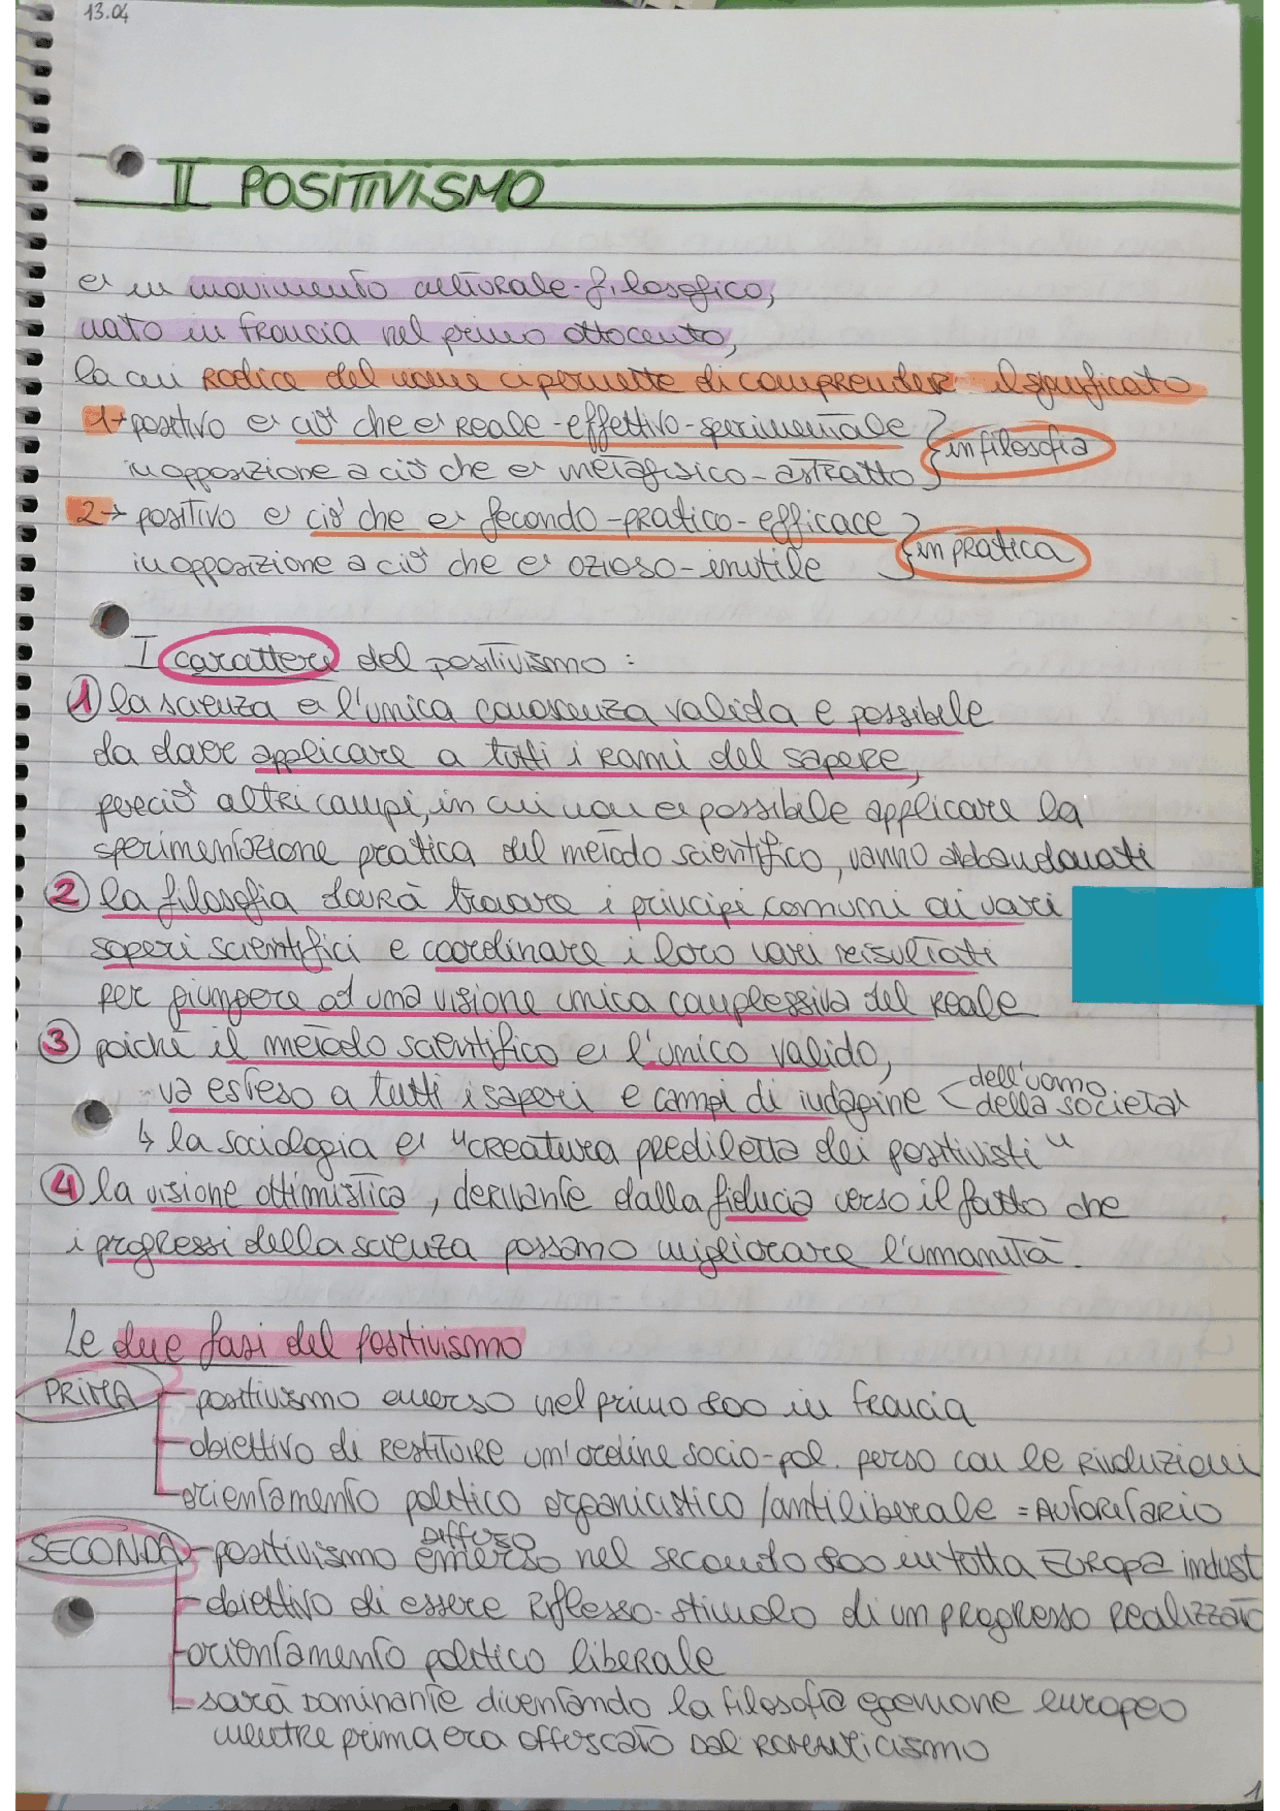 13.04
IL POSITIVISMO
è un movimento culturale-filosofico,
nato in Francia nel primo ottocento,
la cui radice del nome ci permette di comprendere il significato
1→ positivo è ciò che è reale-effettivo-sperimentale
in opposizione a ciò che è metafisico-astratto
in filosofia
2→ positivo è ciò che è fecondo-pratico-efficace
in opposizione a ciò che è ozioso-inutile
in pratica
I caratteri del positivismo:
1 la scienza è l'unica conoscenza valida e possibile
da dover applicare a tutti i rami del sapere,
perciò altri campi, in cui non è possibile applicare la
sperimentazione pratica del metodo scientifico, vanno abbandonati
2 la filosofia dovrà trovare i principi comuni ai vari
saperi scientifici e coordinare i loro vari risultati
per giungere ad una visione unica complessiva del reale
3 poiché il metodo scientifico è l'unico valido,
va esteso a tutti i saperi e campi di indagine < dell'uomo
della società
↳ la sociologia è "creatura prediletta dei positivisti"
4 la visione ottimistica, derivante dalla fiducia verso il fatto che
i progressi della scienza possano migliorare l'umanità.
Le due fasi del Positivismo
PRIMA - positivismo emerso nel primo 800 in Francia
- obiettivo di restituire un'ordine socio-pol. perso con le rivoluzioni
- orientamento politico organicistico /antiliberale = AUTORITARIO
SECONDA - positivismo emerso diffuso nel secondo 800 in tutta Europa indust
- obiettivo di essere riflesso-stimolo di un progresso realizzato
- orientamento politico liberale
- sarà dominante diventando la filosofia egemone europeo
mentre prima era offuscato dal romanticismo
1